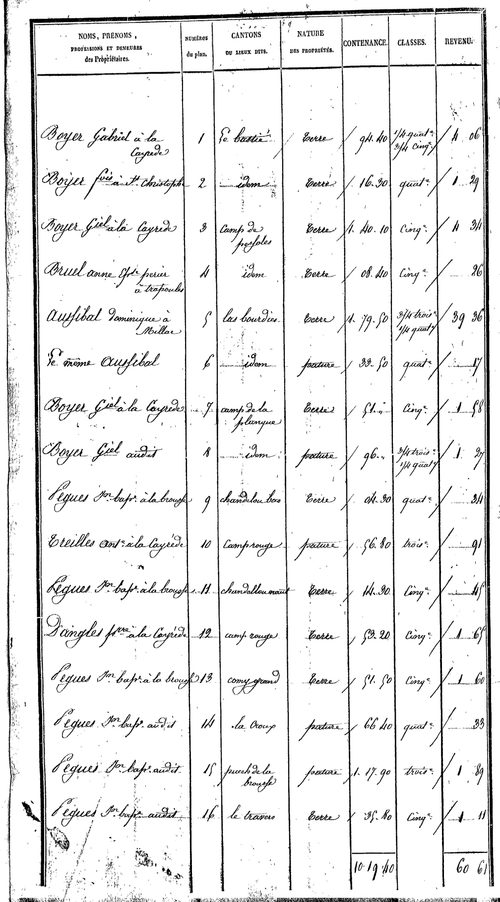 NOMS, PRÉNOMS, PROFESSIONS ET DEMEURES des Propriétaires. | NUMÉROS du plan. | CANTONS OU LIEUX DITS. | NATURE DES PROPRIÉTÉS. | CONTENANCE. | CLASSES. | REVENU.
Boyer Gabriel à la Cayrède 1 Le bastié Terre 94. 40 1/4 quat.e 3/4 Cinq.e 4 06
Boyer fois à St. Christophe 2 idem Terre 16. 30 quat.e 1 29
Boyer Giel à la Cayrède 3 camp de Terre 1. 40. 10 Cinq.e 4 34
Bruel anne à trapoules 4 idem Terre 08. 40 Cinq.e 26
Aussibal dominique à Millac 5 las bourdies Terre 1. 79. 50 3/4 trois.e 1/4 quat.e 39 36
Le même Aussibal 6 idem pature 33. 50 quat.e 17
Boyer Giel à la Cayrède 7 camp de la plungue Terre 51. Cinq.e 1 58
Boyer Giel audit 8 idem pature 96. 3/4 trois.e 1/4 quat.e 1 27
Pegues Jn. bapt. à la brousse 9 chandelou bas Terre 04. 30 quat.e 34
Treilles ant.e à la Cayrède 10 Camprouge pature 56. 80 trois.e 91
Pegues Jn. bapt. à la brousse 11 chandellou naut Terre 14. 30 Cinq.e 45
Dangles pierre à la Cayrède 12 camp rouge Terre 53. 20 Cinq.e 1 65
Pegues Jn. bapt. à la brousse 13 camp grand Terre 51. 50 Cinq.e 1 60
Pegues Jn. bapt. audit 14 la Croux pature 66 40 quat.e 33
Pegues Jn. bapt. audit 15 puech de la brousse pature 1. 17. 90 trois.e 1 89
Pegues Jn. bapt. audit 16 le travers Terre 35. 80 Cinq.e 1 11
10. 19. 40 60 61